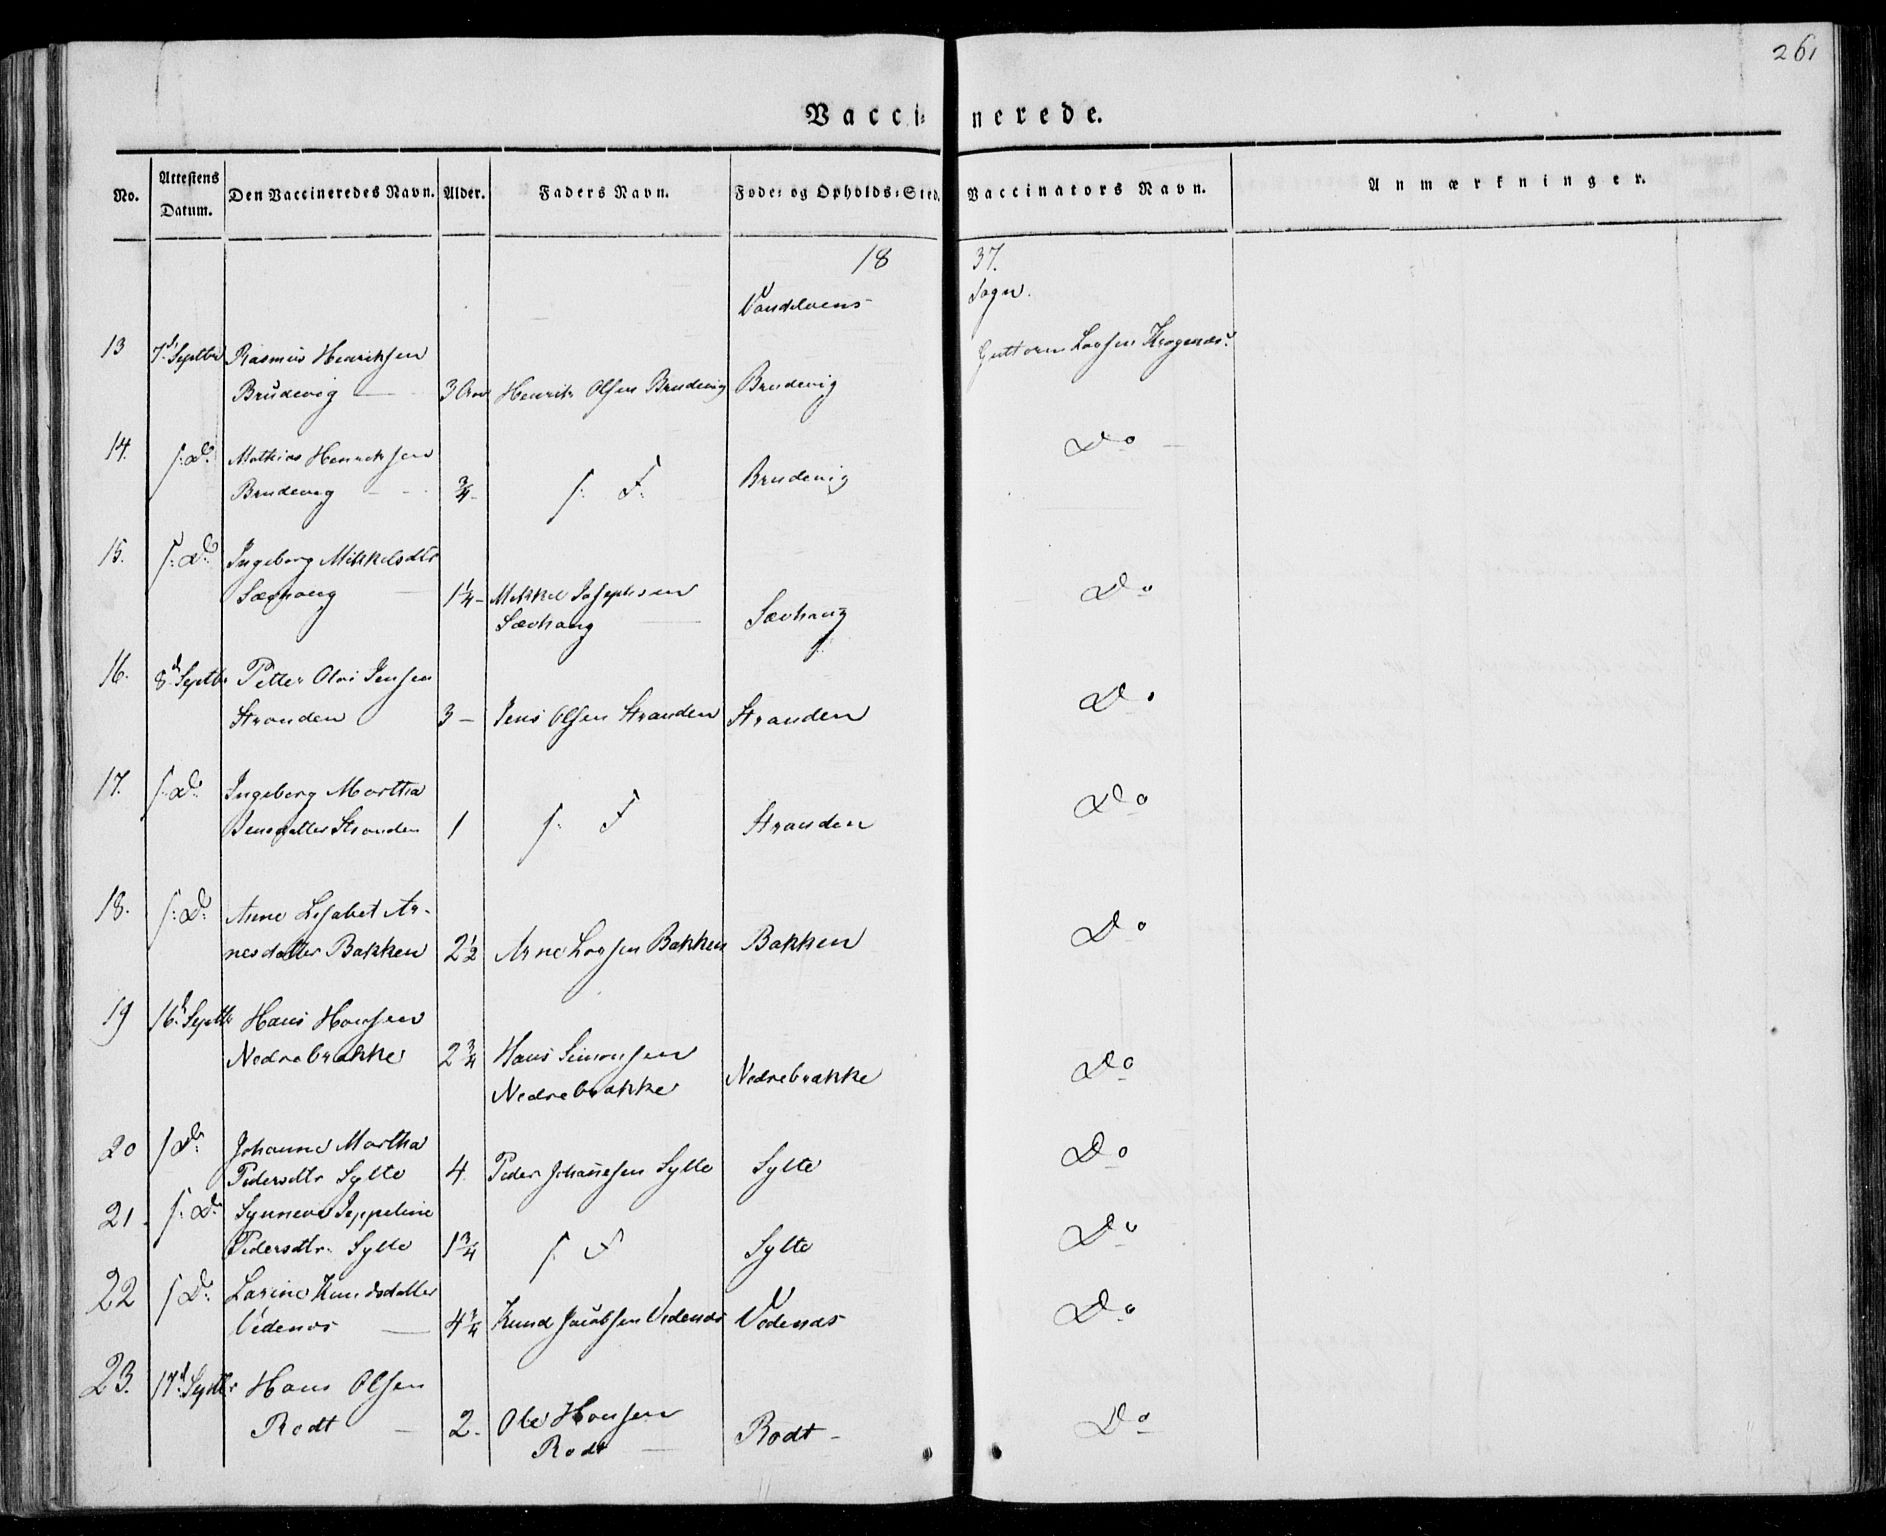 261
Vacci= nerede.
No. Attestens Datum. Den Vaccineredes Navn. Alder. Faders Navn. Føde= og Opholds=Sted. Vaccinators Navn. Anmærkninger.
18 37.
Vandelvens Sogn.
13 7d Septbr Rasmus Henriksen Guttorm Larsen Kragenæs.
Brudevig — 3 Henrik Olsen Brudevig Brudevig
14. s: D: Mathias Henriksen Do —
Brudevig — 3/4 - s: F: Brudevig
15. s: D: Ingeborg Mikkelsdtr Do
Sævhaug — 1 1/4 - Mikkel Josephsen Sævhaug
Sævhaug —
16. 8d Septbr Petter Olai Jensen Do
Stranden 3 — Jens Olsen Stranden Stranden
17. s: D: Ingeborg Martha Do
Jensdatter Stranden 1 s: F Stranden
18. s: D: Anne Lisabet Ar- Do
nesdatter Bakken 2 1/2 Arne Larsen Bakken Bakken
19 16d Septbr Hans Hansen
Nedrebrække 2 3/4 Hans Simonsen Nedrebrække Do
Nedrebrække
20 s D: Johanne Martha Do
Pedersdtr Sylte 4. Peder Johanesen Sylte Sylte
21. s: D: Synneve Jeppeline Do
Pedersdtr. Sylte 1 3/4 s: F Sylte
22 s D: Larine Knudsdatter Do
Vedenæs — 4 1/4 Knud Jacobsen Vedenæs Vedenæs
23. 17d Septbr Hans Olsen Do
Rødt — 2. Ole Hansen Rødt -
Rødt —